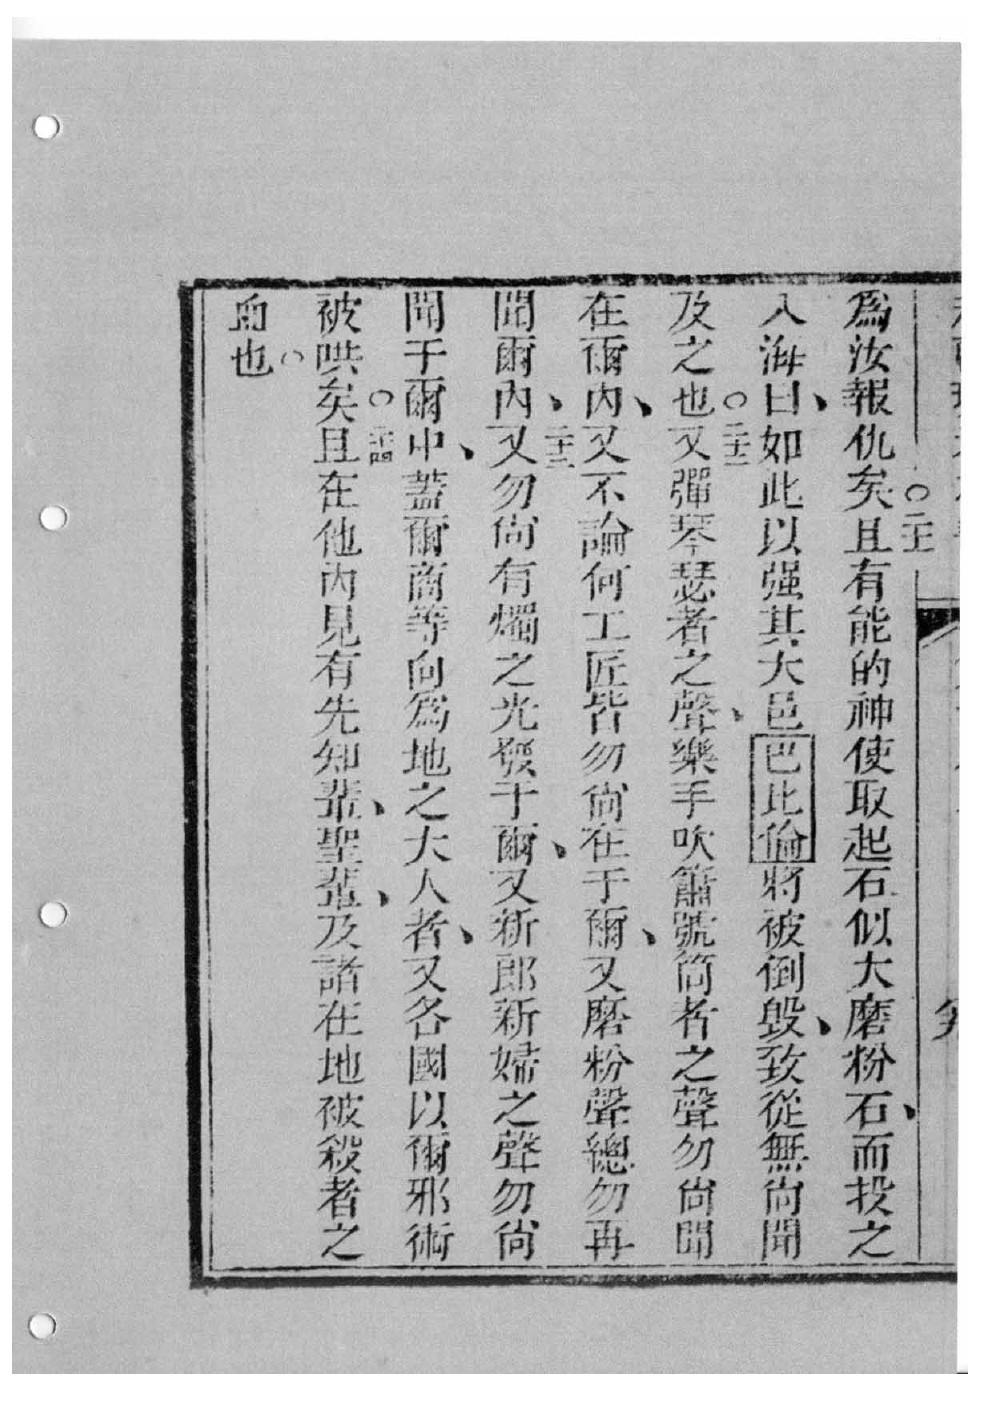 爲汝報仇矣○二十一且有能的神使取起石似大磨粉石、而投之
入海曰、如此以强其大邑巴比倫將被倒毀、致從無尚聞
及之也○二十二又彈琴瑟者之聲、樂手吹簫號筒者之聲勿尚聞
在爾內、又不論何工匠皆勿尚在于爾、又磨粉聲總勿再
聞爾內、二十三又勿尚有燭之光發于爾、又新郎新婦之聲勿尚
聞于爾中、蓋爾商等向爲地之大人者、又各國以爾邪術
被哄矣○二十四且在他內見有先知輩、聖輩、及諸在地被殺者之
血也○